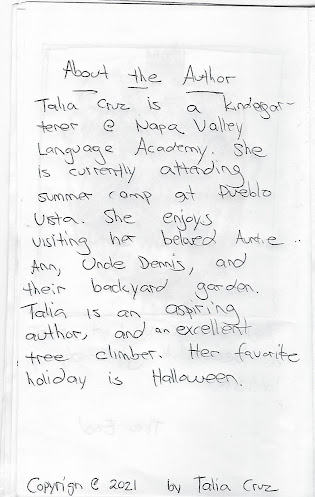 About the Author
Talia Cruz is a kindegar-
tener @ Napa Valley
Language Academy. She
is currently attending
summer camp at Pueblo
Vista. She enjoys
visiting her beloved Auntie
Ann, Uncle Dennis, and
their backyard garden.
Talia is an aspiring
author, and an excellent
tree climber. Her favorite
holiday is Halloween.
Copyrign © 2021 by Talia Cruz